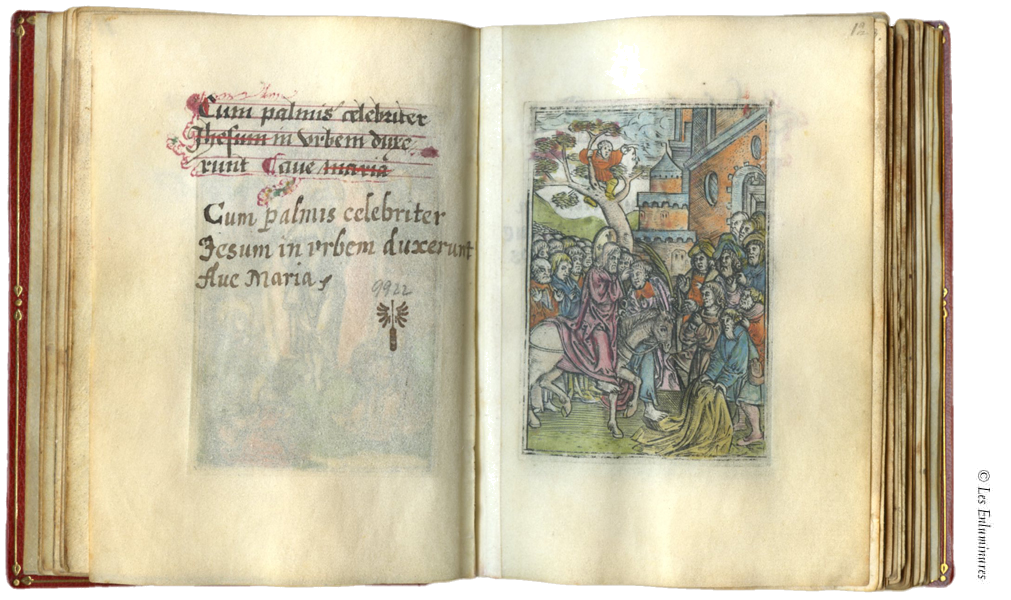 Cum palmis celebriter
Jhesum in vrbem duxe
runt Caue maria
Cum palmis celebriter
Jesum in vrbem duxerunt
Aue Maria
9922
12
© Les Enluminures